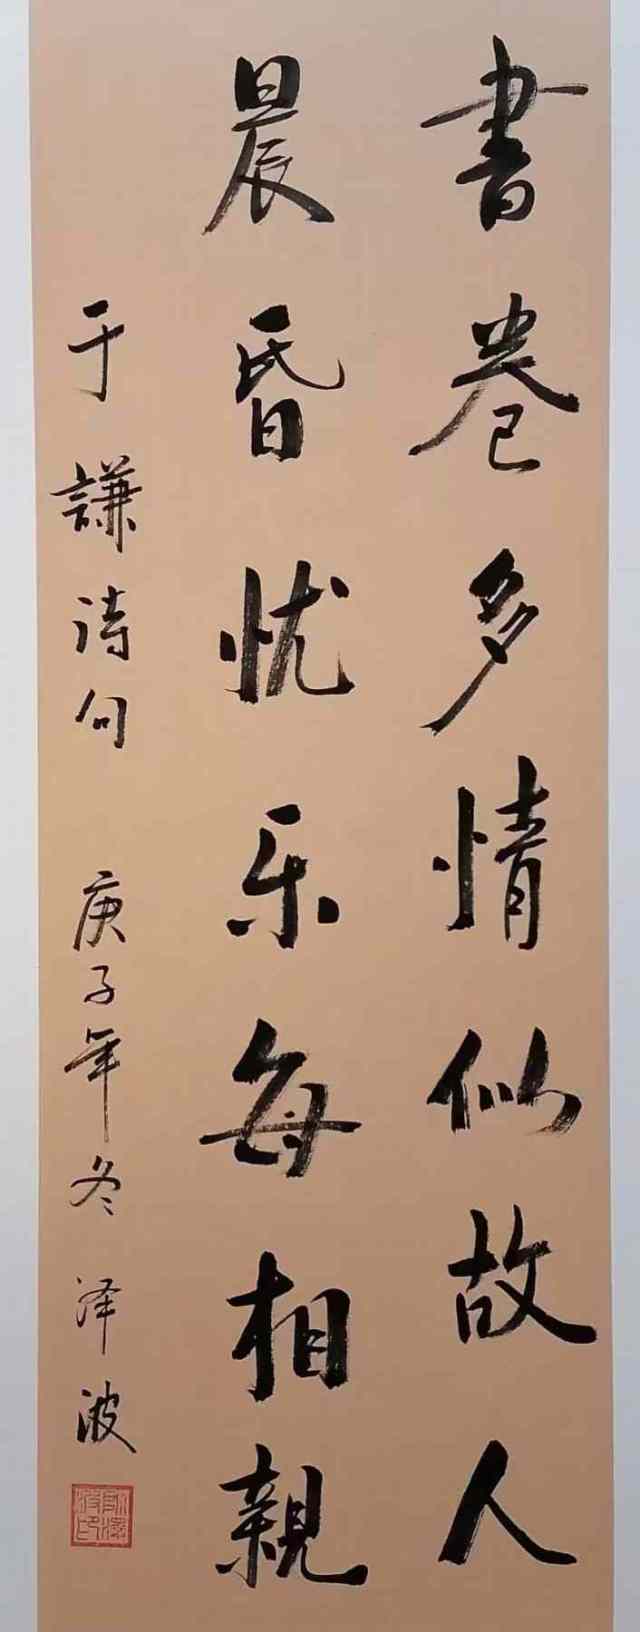 書卷多情似故人
晨昏忧乐每相親
于謙诗句 庚子年冬 泽波